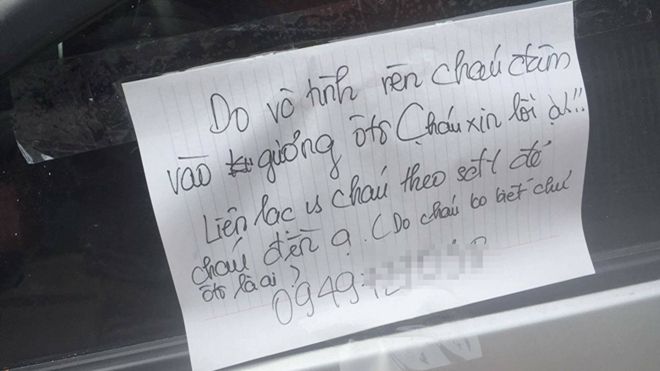 Do vô tình nên cháu đâm
vào gương ôtô Cháu xin lỗi ạ!!
Liên lạc vs cháu theo sđt để
cháu đền ạ. (Do cháu ko biết chủ
ôtô là ai)
0949